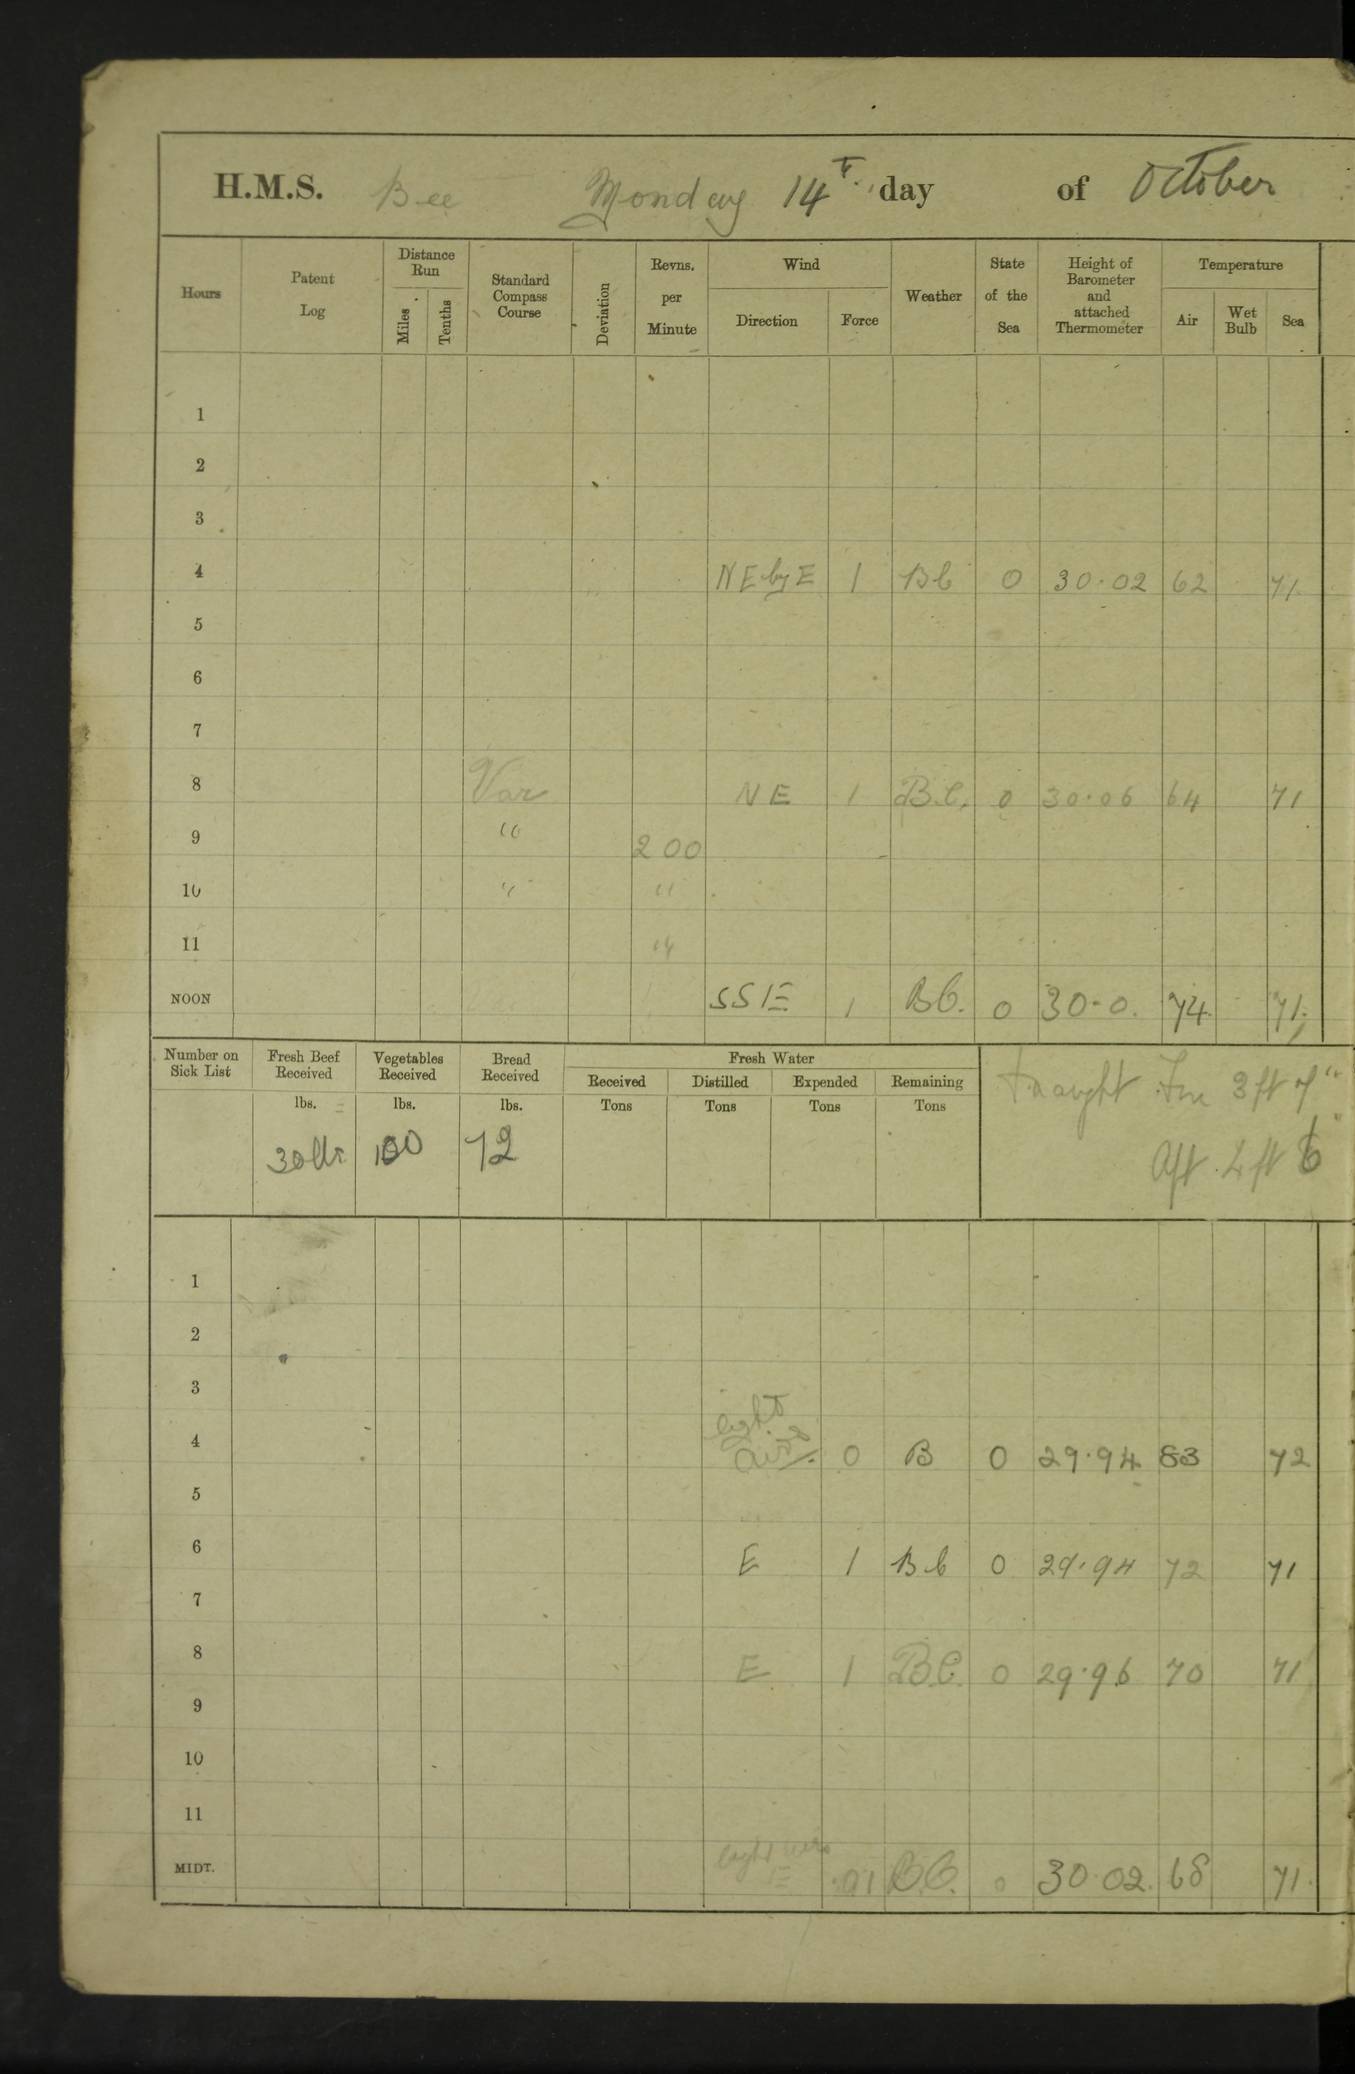 H.M.S. Bee Monday 14th day of October
Hours Patent Log Distance Run Miles Tenths Standard Compass Course Deviation Revns. per Minute Wind Direction Force Weather State of the Sea Height of Barometer and attached Thermometer Temperature Air Wet Bulb Sea
1
2
3
4 NE by E 1 Bb 0 30.02 62 71
5
6
7
8 Var NE 1 B.C. 0 30.06 64 71
9 " 200
10 " "
11 "
NOON SSE 1 BC. 0 30.0. 74 71
Number on Sick List Fresh Beef Received Vegetables Received Bread Received Fresh Water
Received Distilled Expended Remaining
lbs. lbs. lbs. Tons Tons Tons Tons
Draught For 3ft 7"
30 lbs 100 72
Aft 4ft 6"
1
2
3
4 light airs 0 B 0 29.94 83 72
5
6 E 1 Bb 0 29.94 72 71
7
8 E 1 B.C. 0 29.96 70 71
9
10
11
MIDT. light airs E 01 B.C. 0 30.02 68 71